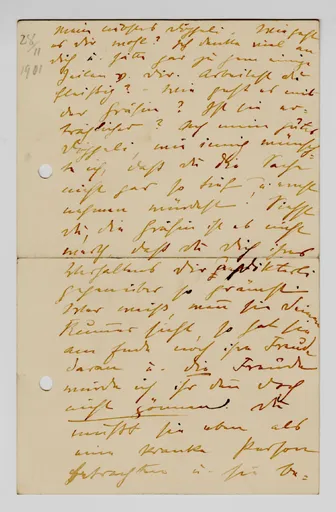 28/11
1901
Mein liebstes Döggeli, wie geht
es dir wohl? Ich denke viel an
dich u. hätte gar zu gern einige
Zeilen v. dir. Arbeitest du
fleißig? - Wie geht es mit
der Gräfin? Ist sie er-
träglicher? Ach mein gutes
Döggeli, wie innig wünsch-
te ich, daß du die Sache
nicht gar so tief u. ernst
nehmen würdest! Siehst
du, die Gräfin ist es nicht
werth, daß du dich ihres
Verhaltens dir gegenüber
so grämst.
Wer weiß, wenn sie deinen
Kummer sieht, so hat sie
am Ende noch ihre Freude
daran u. die Freude
würde ich ihr denn doch
nicht gönnen. Du
mußt sie eben als
eine kranke Person
betrachten u. sie be-